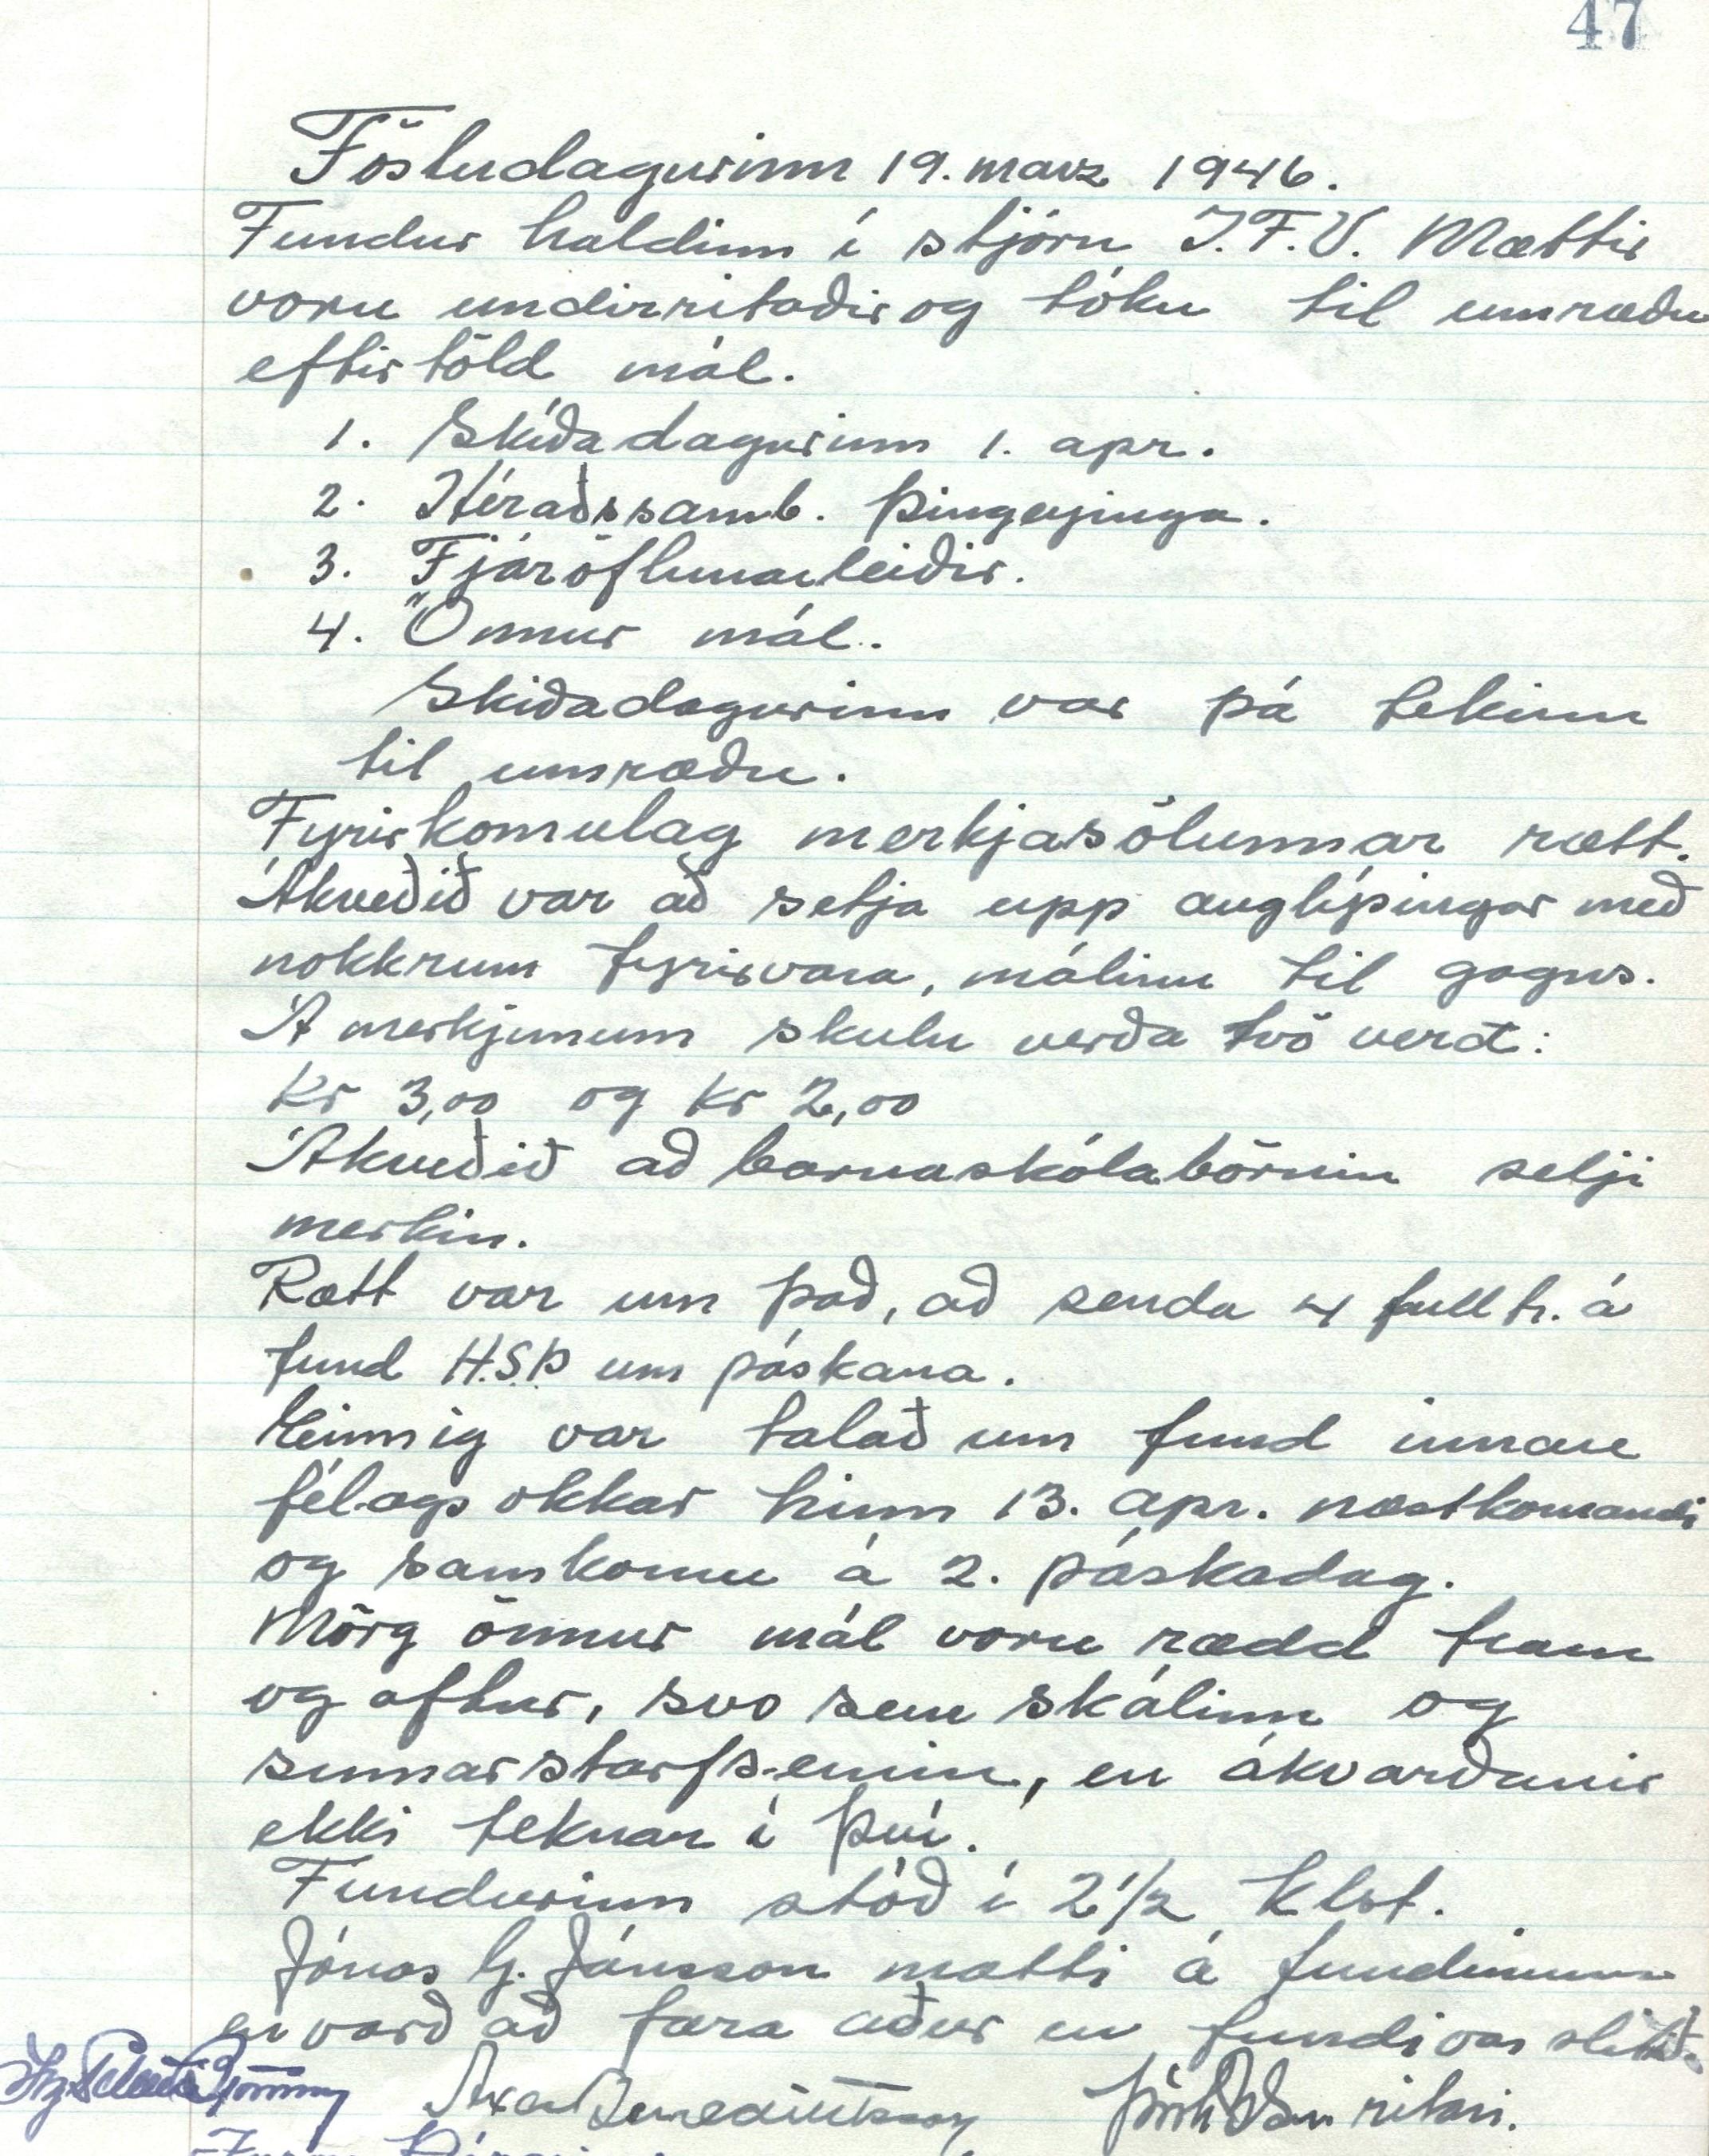 47
Föstudagurinn 19. marz 1946.
Fundur haldinn í stjórn I.F.V. Mættir
voru undirritaðir og tóku til umræðu
eftirtöld mál.
1. Skíðadagurinn 1. apr.
2. Héraðssamb. Þingeyinga.
3. Fjáröflunarleiðir.
4. Önnur mál.
Skíðadagurinn var þá tekinn
til umræðu.
Fyrirkomulag merkjasölunnar rætt.
Ákveðið var að setja upp auglýsingar með
nokkrum fyrirvara, málinu til gagns.
Á merkjunum skulu verða tvö verð:
Kr 3,00 og kr 2,00
Ákveðið að barnaskólabörnin selji
merkin.
Rætt var um það, að senda 4 fulltr. á
fund H.S.Þ um páskana.
Einnig var talað um fund innan
félags okkar hinn 13. apr. næstkomandi
og samkomu á 2. páskadag.
Mörg önnur mál voru rædd fram
og aftur, svo sem skálinn og
sumarstarfsemin, en ákvarðanir
ekki teknar í því.
Fundurinn stóð í 2 1/2 klst.
Jónas G. Jónsson mætti á fundinum
en varð að fara áður en fundi var slitið.
Axel Benediktsson ritari.